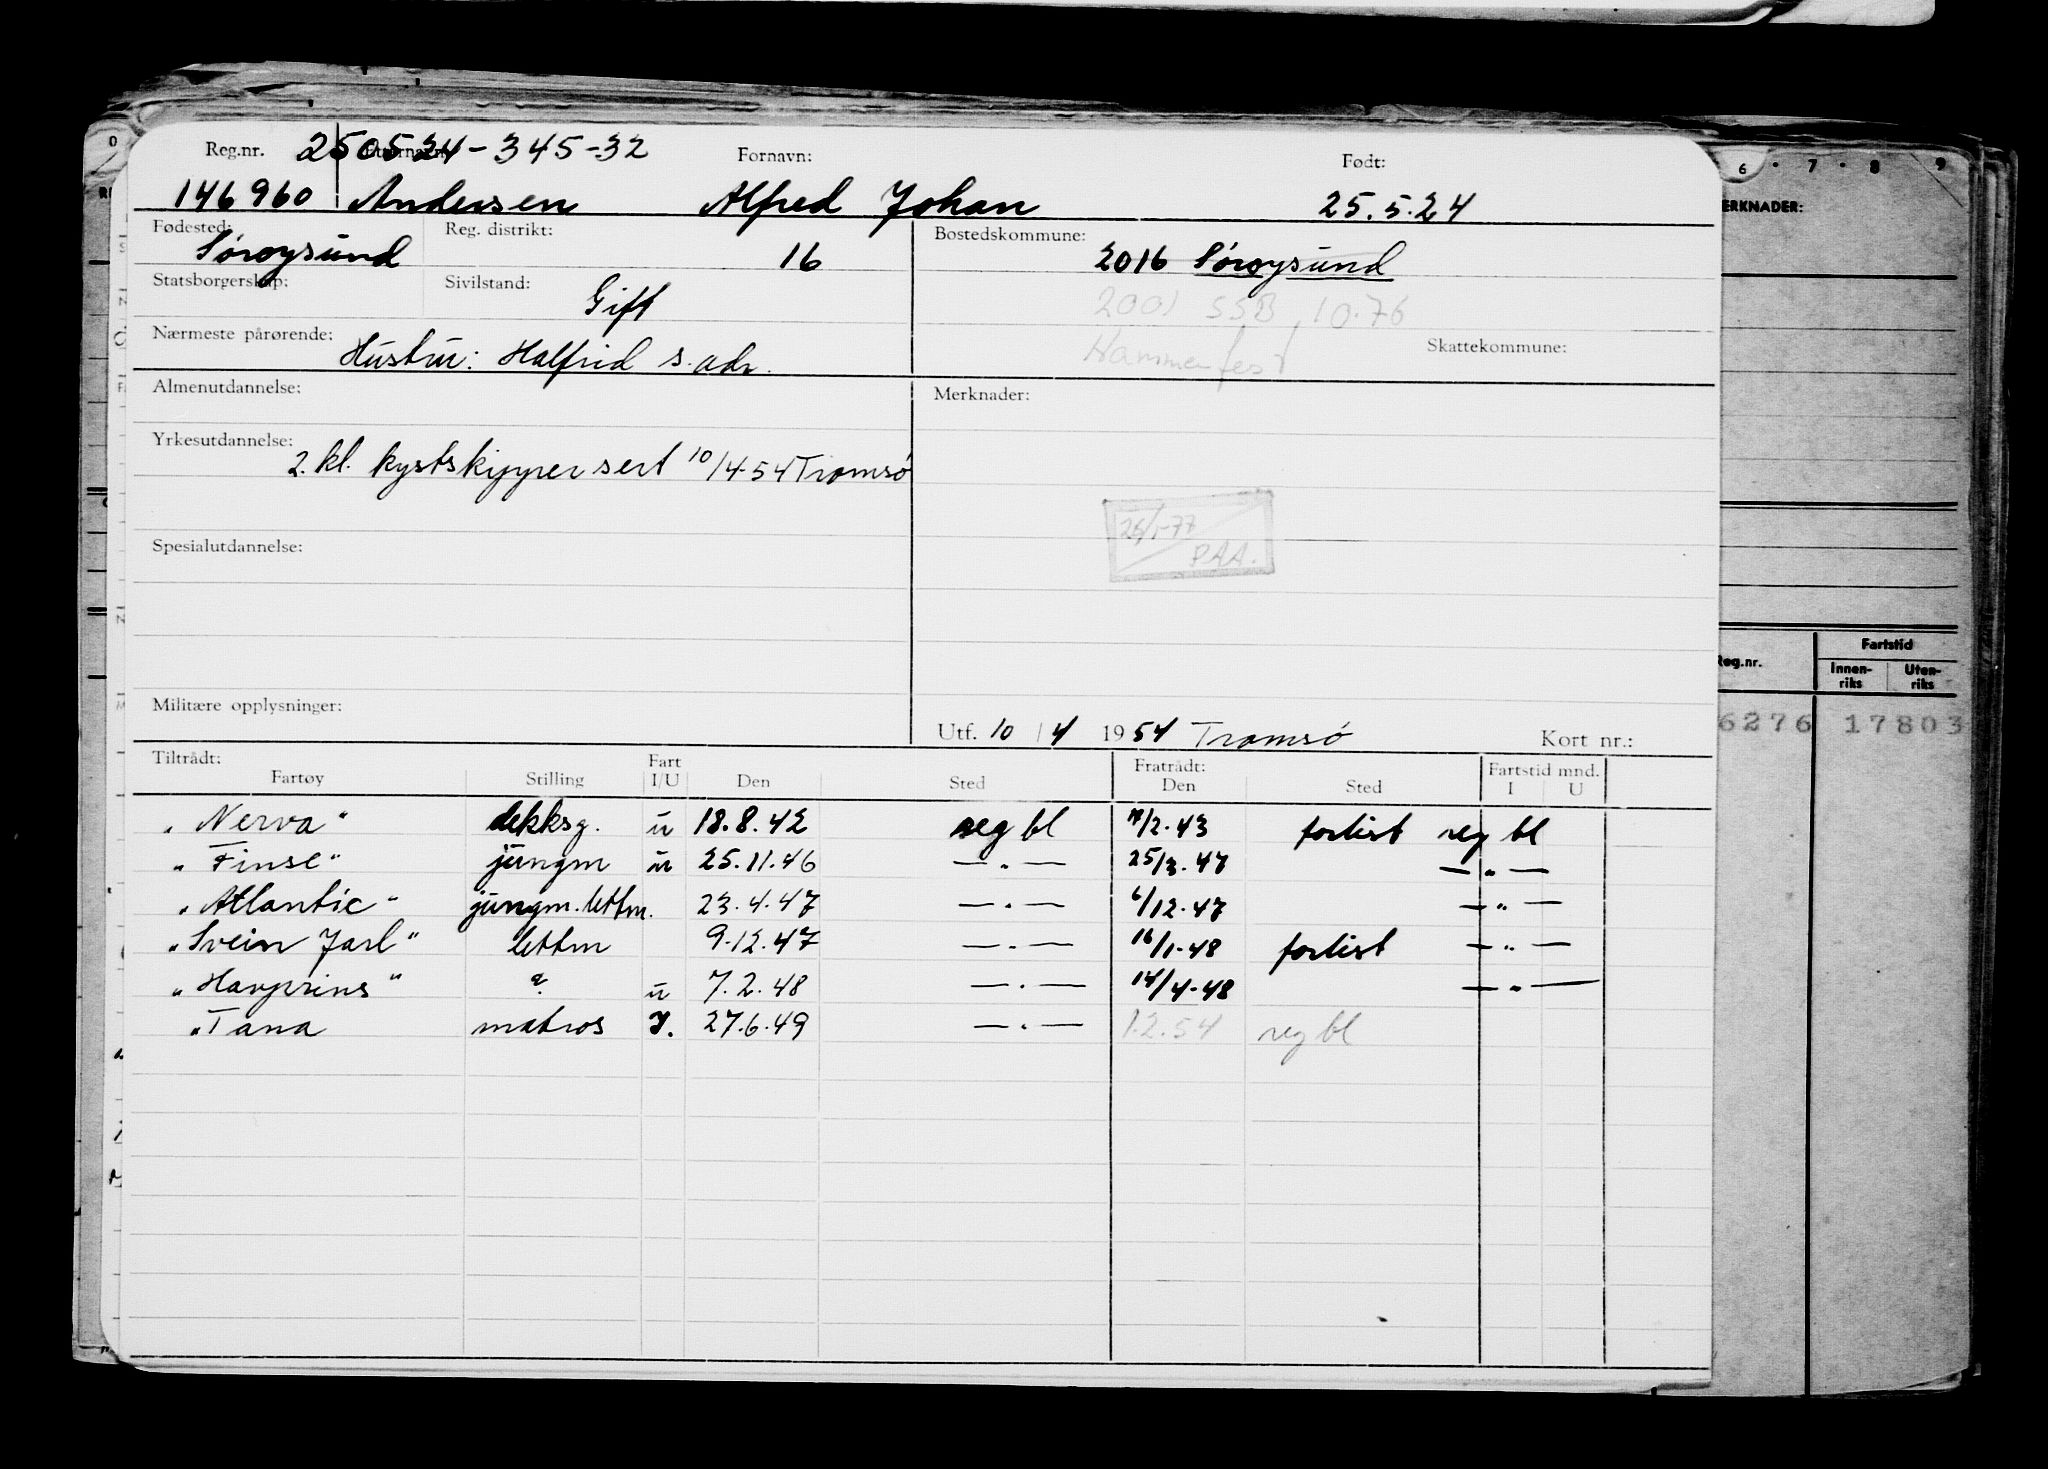 Reg.nr. 250524-345-32 Etternavn: Fornavn: Født:
146960 Andersen Alfred Johan 25.5.24
Fødested: Reg. distrikt: Bostedskommune:
Sørøysund 16 2016 Sørøysund
Statsborgerskap: Sivilstand: Gift
2001 SSB 10.76
Nærmeste pårørende: Hustru: Halfrid s. adr. Hammerfest Skattekommune:
Almenutdannelse: Merknader:
Yrkesutdannelse: 2. kl. kystskippersert 10/4-54 Tromsø
26/1-77
PAA.
Spesialutdannelse:
Militære opplysninger:
Utf. 10/4 1954 Tromsø Kort nr.:
Tiltrådt: Fratrådt: Fartstid mnd.
Fartøy Stilling Fart I/U Den Sted Den Sted I U
"Nerva" dekksg. u 18.8.42 reg bl /2.43 forlist reg bl
"Finse" jungm u 25.11.46 — " — 25/3.47 — " —
"Atlantic" jungm. lettm. 23.4.47 — " — 6/12.47 — " —
"Svein Jarl" lettm 9.12.47 — " — 16/1.48 forlist — " —
"Havprins" " u 7.2.48 — " — 14/4.48 — " —
"Tana matros I. 27.6.49 — " — 1.2.54 reg bl
6 . 7 . 8 9
ERKNADER:
Reg.nr. Fartstid
Innen-riks Uten-riks
6276 17803